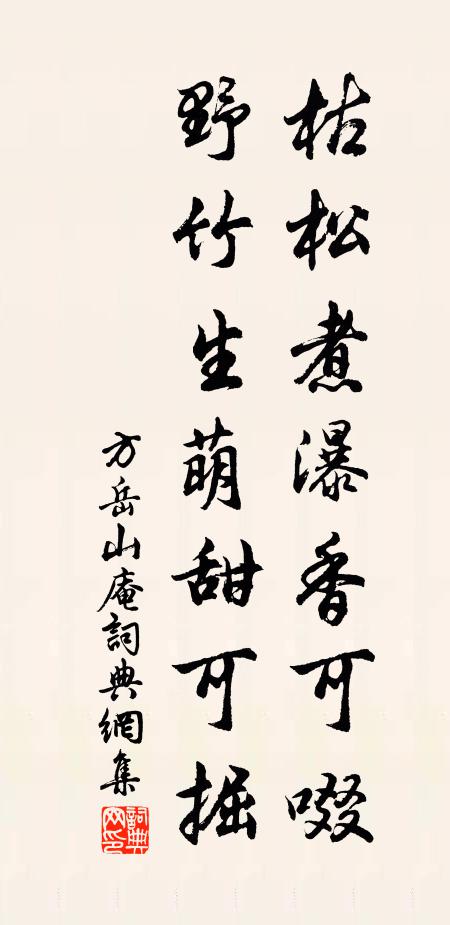 枯松煮瀑香可啜
野竹生萌甜可掘
方岳山庵詞典網集
詞典网印